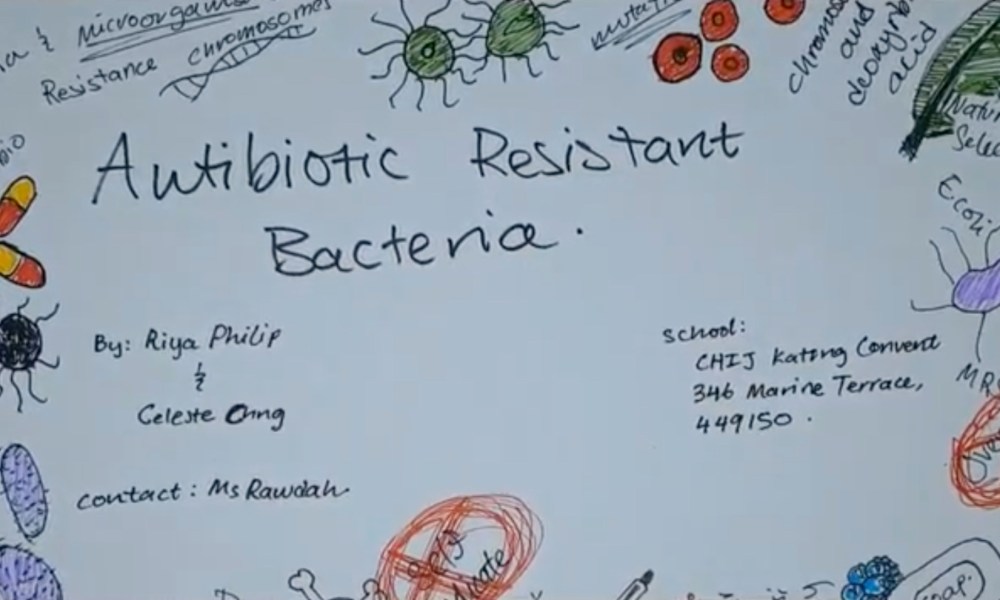 & microorganis
mutati
Resistance chromosomes
chromos
and
deoxyrib
acid
Natur
Selec
bio
Antibiotic Resistant
Bacteria.
Ecoli
By: Riya Philip
&
Celeste Chng
school:
CHIJ Katong Convent
346 Marine Terrace,
449150.
MR
contact: Ms Rawdah
soap.